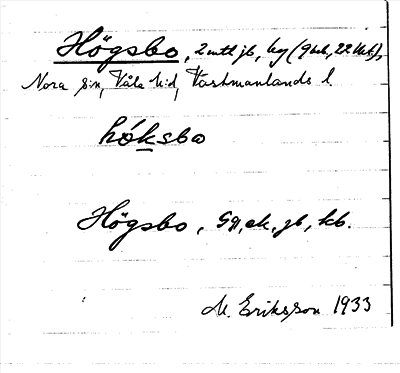 Högsbo, 2 mtl jb, by (9 hb, 22 kb),
Nora sn, Våla hd, Västmanlands l.
hóksbo
Högsbo, Gg, ek, jb, kb.
M. Eriksson 1933